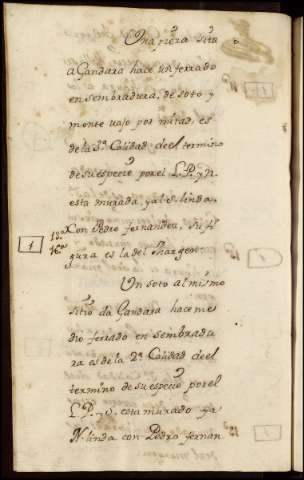 Una pieza sitio
a Gandara hace un ferrado
en sembradura, de soto y
monte vajo por mitad, es
de la 3ª Calidad del termino
de su especie por el L. P. y N.
esta murada, y al S. linda
Con Pedro fernandez, su fi
gura es la del Margen
1
Un soto al mismo
sitio da Gandara hace me
dio ferrado en sembradu
ra es de la 2ª Calidad del
termino de su especie por el
L. P. y S. esta murado y a
N. linda con Pedro fernan